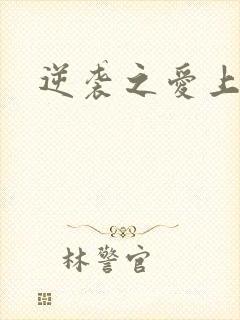 逆袭之爱上
林警官